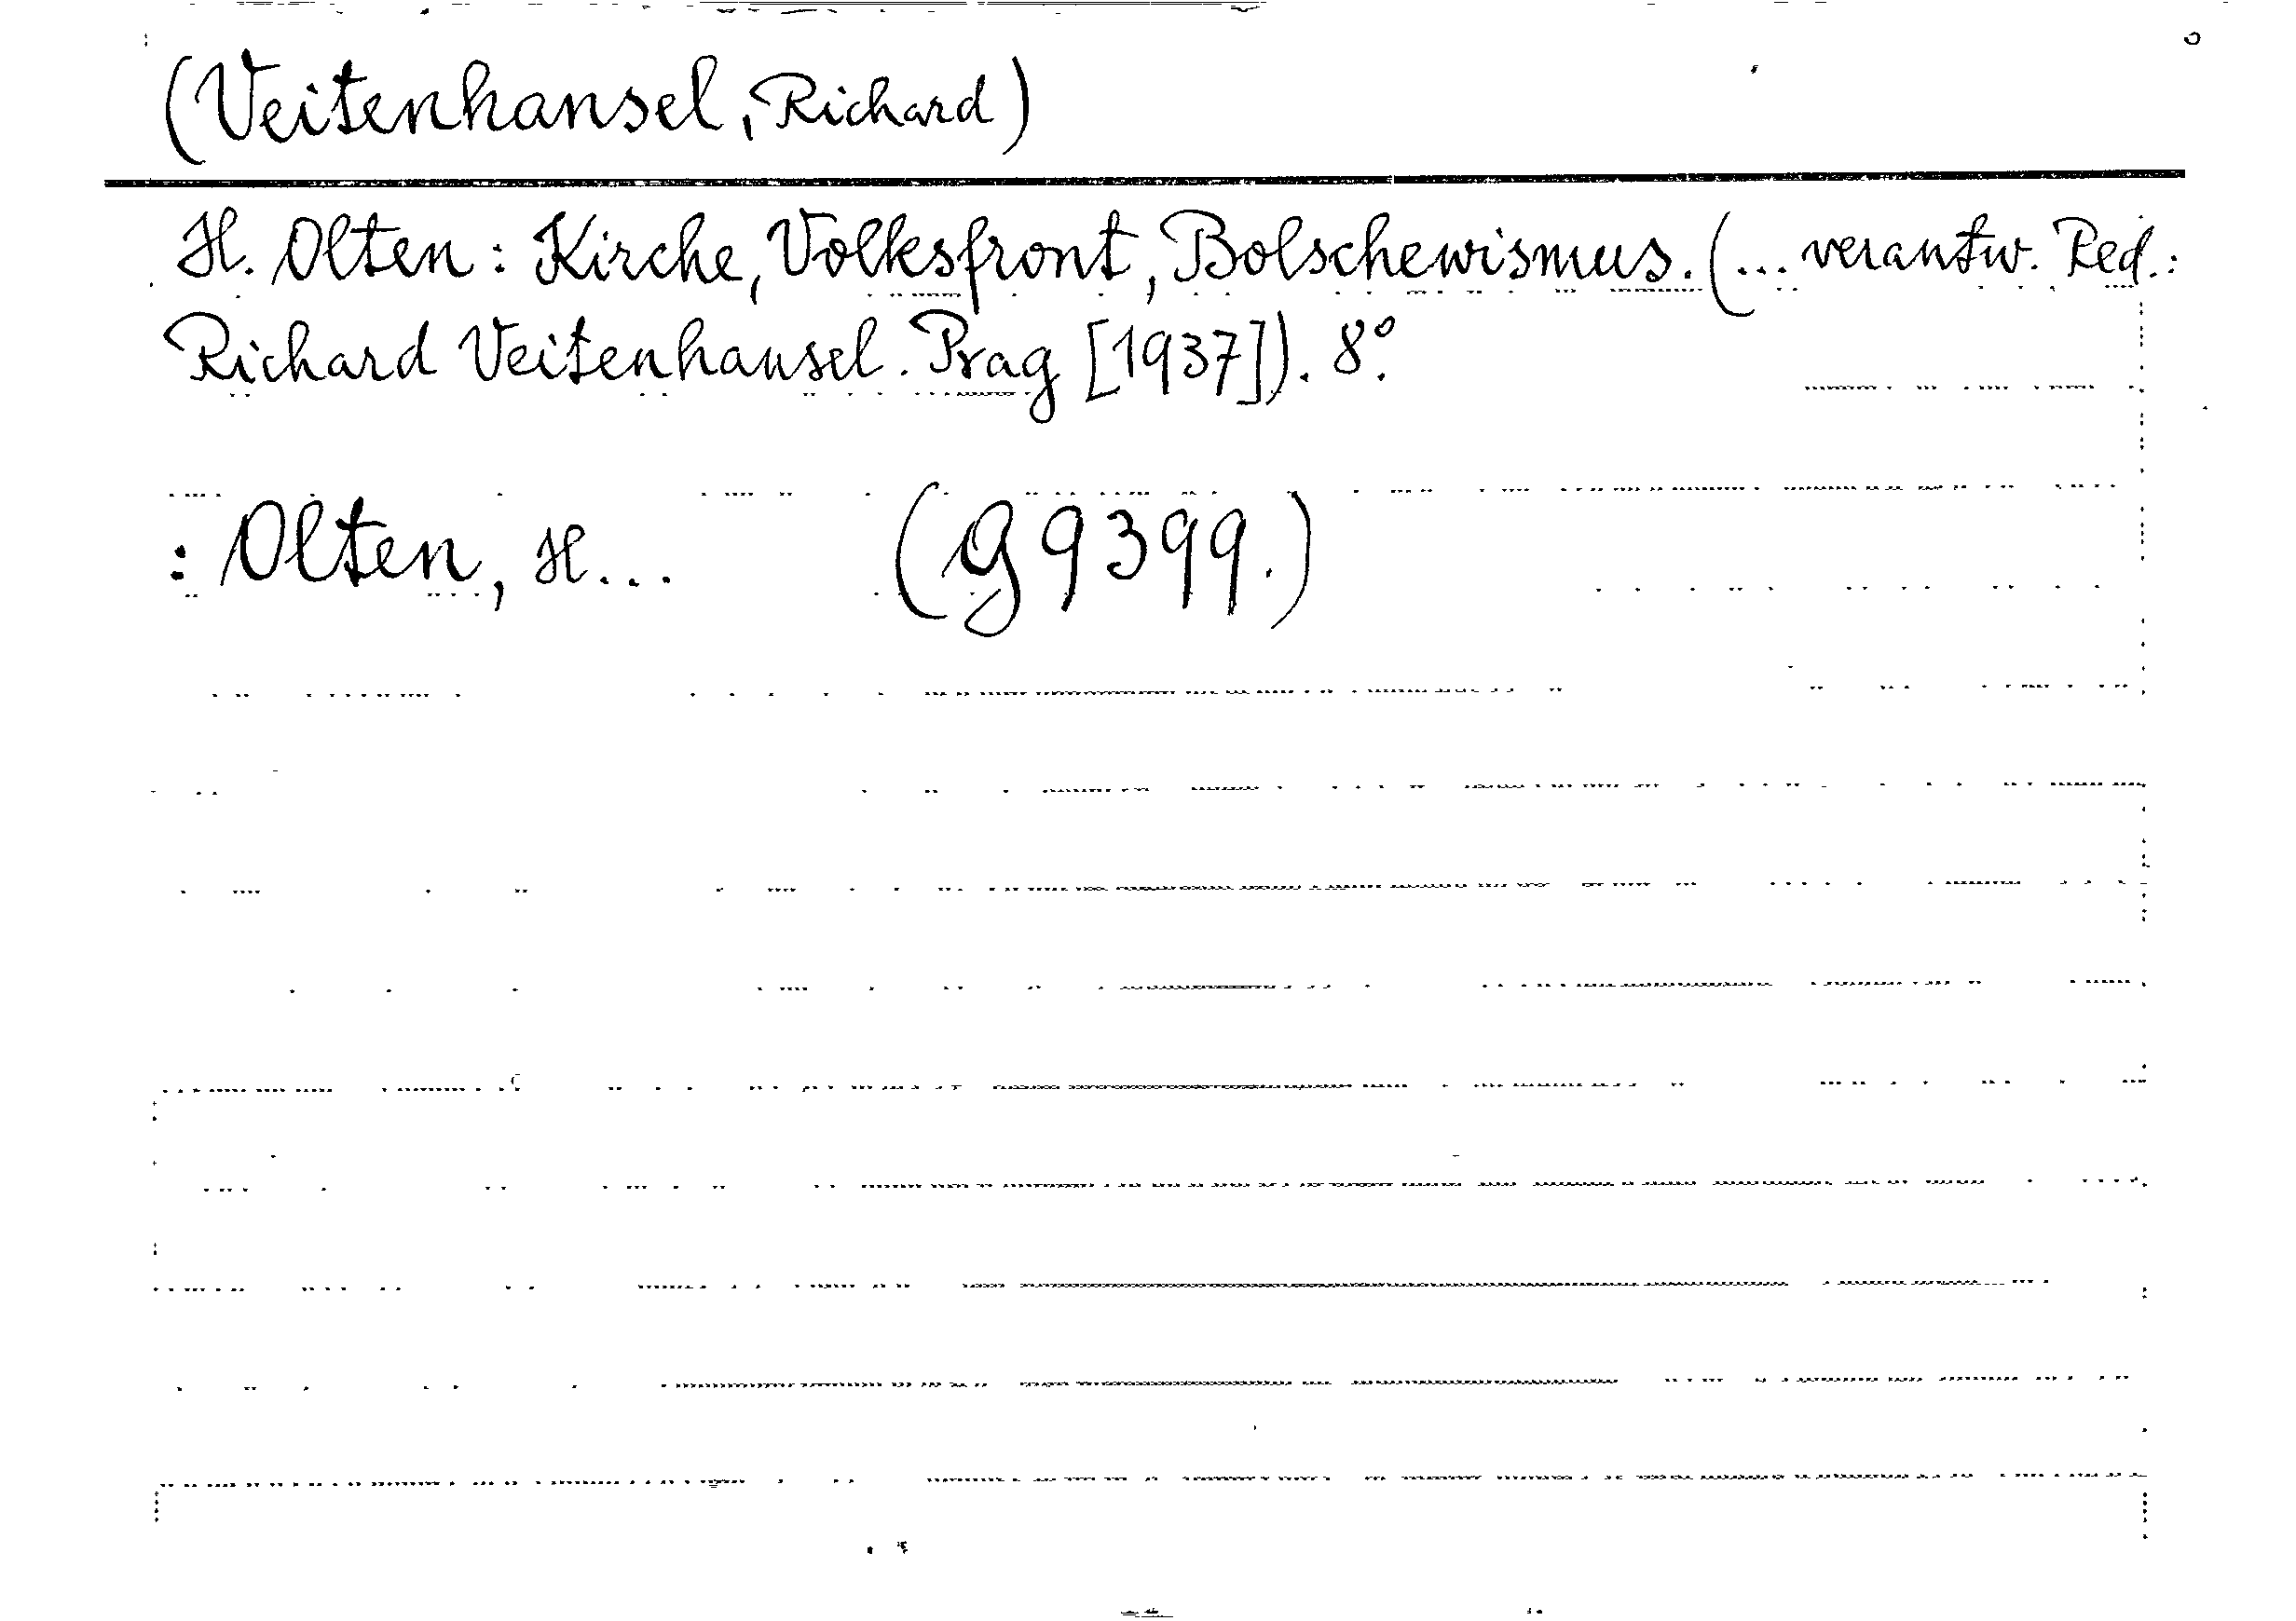 (Veitenhansel, Richard)
H. Olten: Kirche, Volksfront, Bolschewismus. (... verantw. Red.:
Richard Veitenhansel. Prag [1937]). 8°.
: Olten, H... (g 9399.)